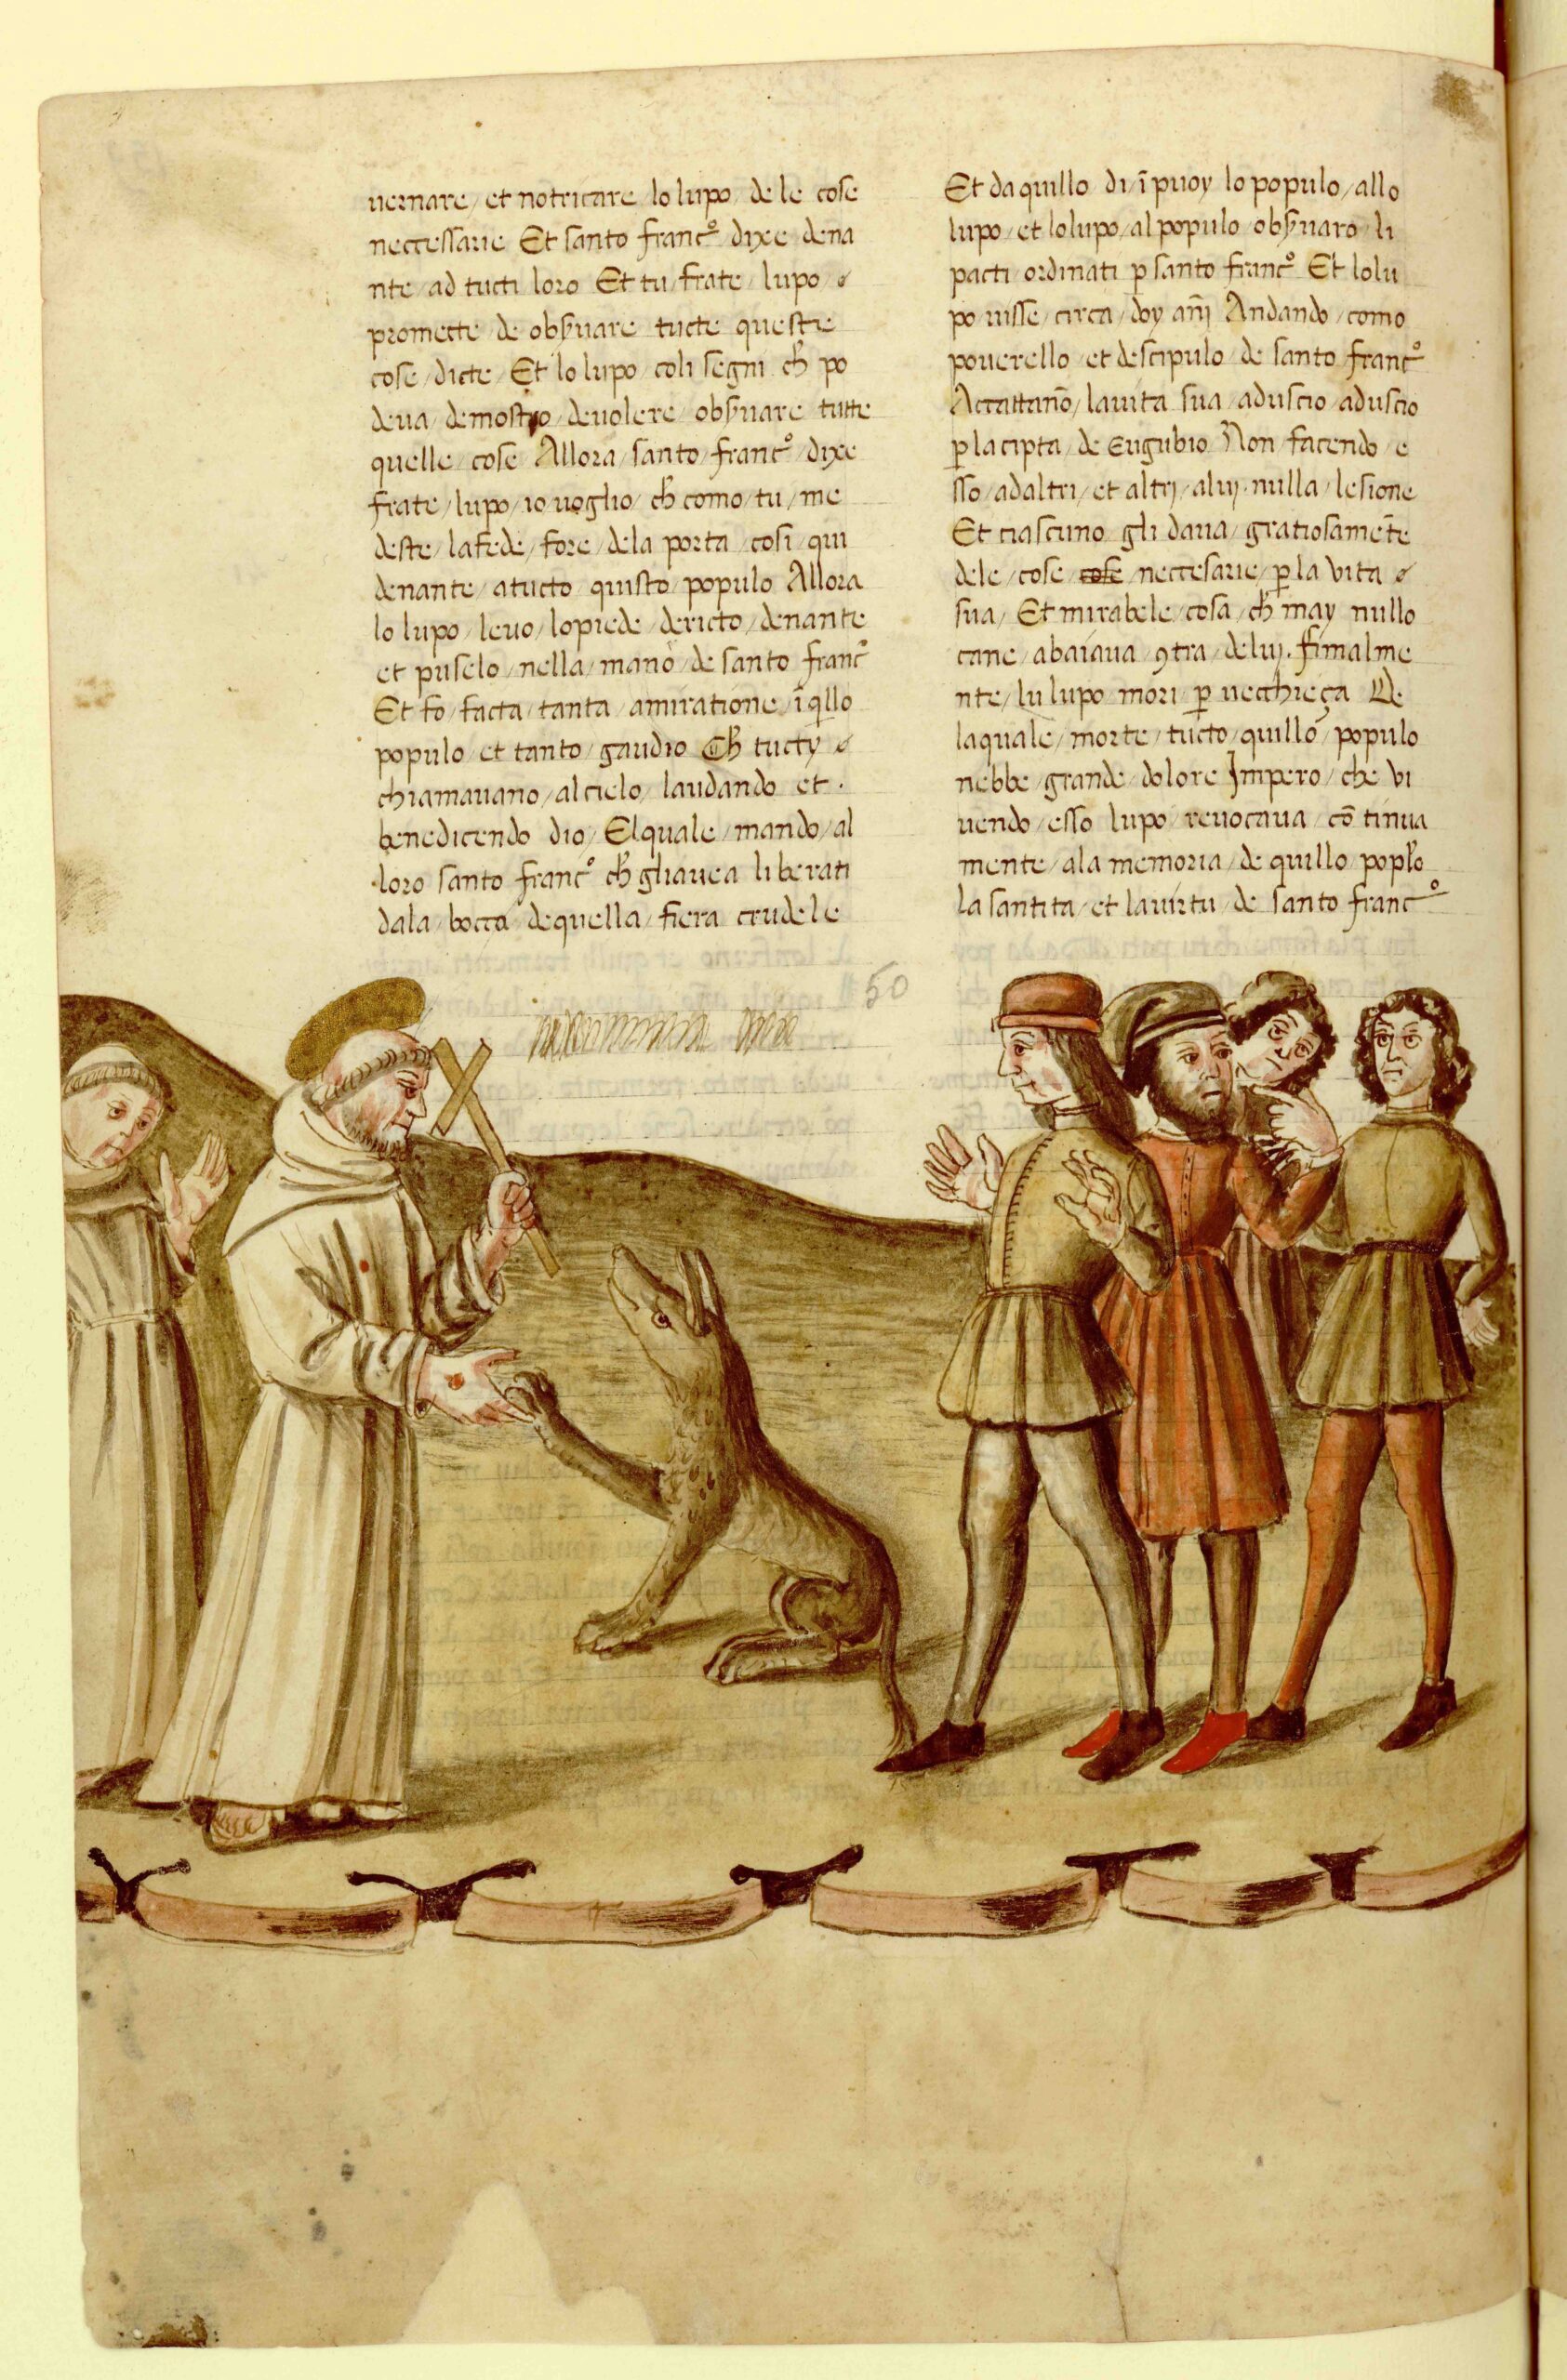 vernare / et notricare / lo lupo / de le cose
neccessarie Et santo francº dixe dena
nte / ad tucti loro Et tu / frate / lupo
promecte / de obs̄vare tucte queste
cose / dicte / Et lo lupo / coli segni ch̄ po
deva / demostro / de volere / obs̄vare tutte
quelle / cose Allora / santo / francº / dixe
frate / lupo / io voglio / ch̄ como / tu / me
deste / la fede / fore / dela porta / cosi / qui
denante / a tucto quisto / populo Allora
lo lupo / levo / lo piede / dericto / denante
et puselo / nella / mano / de santo francº
Et fo / facta / tanta / amiratione / ī q̄llo
populo / et tanto / gaudio Ch̄ tucty
chiamavano / al cielo / laudando et ·
benedicendo dio / El quale / mando / al
loro santo francº ch̄ gli avea liberati
dala / bocca dequella / fiera crudele
Et da quillo di / ī puoy lo populo / allo
lupo / et lo lupo / al populo obs̄varo / li
pacti ordinati p̱ santo francº Et lo lu
po visse / circa / doy an̄j Andando / como
poverello / et descipulo / de santo francº
Accattan̄o / la vita sua / aduscio / aduscio
p̱ la cipta / de Eugubio Non facendo / e
sso / ad altri / et altrj / a luy · nulla / lesione
Et ciascuno gli dava / gratiosamēte
dele / cose cose neccesarie / p̱ la vita
sua / Et mirabele / cosa / ch̄ may nullo
cane / abaiava ꝯtra / de luj. fimalme
nte / lu lupo mori p̱ vecchieça De
la quale / morte / tucto / quillo / populo
nebbe / grande / dolore Impero / che vi
vendo / esso lupo revocava / cō tinua
mente / ala memoria / de quillo popło
la santita / et la virtu / de santo francº
50